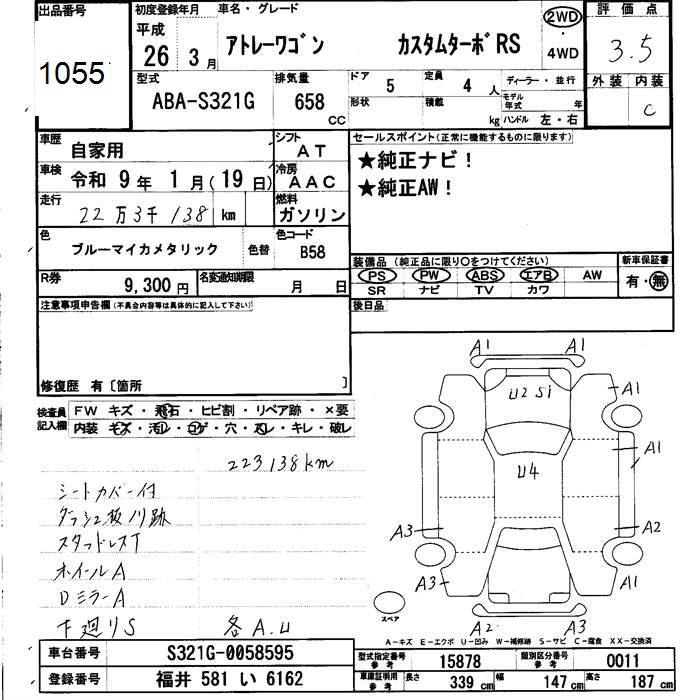 出品番号
1055
初度登録年月
平成
26 3月
車名・グレード
アトレーワゴン カスタムターボRS
2WD
・
4WD
評価点
3.5
外装 内装
C
型式
ABA-S321G
排気量
658 CC
ドア 5
定員 4人
形状
積載 kg
ディーラー・並行
モデル年式 年
ハンドル 左・右
車歴
自家用
シフト
AT
車検
令和 9年 1月(19日)
冷房
AAC
走行
22万3千138 km
燃料
ガソリン
色
ブルーマイカメタリック
色替
色コード
B58
R券
9,300円
名変通知期限
月 日
セールスポイント(正常に機能するものに限ります)
★純正ナビ!
★純正AW!
装備品(純正品に限り○をつけてください)
PS PW ABS エアB AW
SR ナビ TV カワ
新車保証書
有・無
後日品
注意事項申告欄(不具合内容等は具体的に記入して下さい)
修復歴 有〔箇所 〕
検査員記入欄
FW キズ・飛石・ヒビ割・リペア跡・×要
内装 キズ・汚レ・コゲ・穴・スレ・キレ・破レ
223138km
シートカバー付
ダッシュ板ノリ跡
スタッドレスT
ホイールA
DミラーA
下廻りS 各A.U
A1 A1
U2 S1
A1
A1
U4
A3 A2
A3 A1
A2 A3
スペア
A-キズ E-エクボ U-凹み W-補修跡 S-サビ C-腐食 XX-交換済
車台番号 S321G-0058595
登録番号 福井 581 い 6162
型式指定番号 参考 15878
類別区分番号 参考 0011
車庫証明用 参考 長さ 339cm 幅 147cm 高さ 187cm